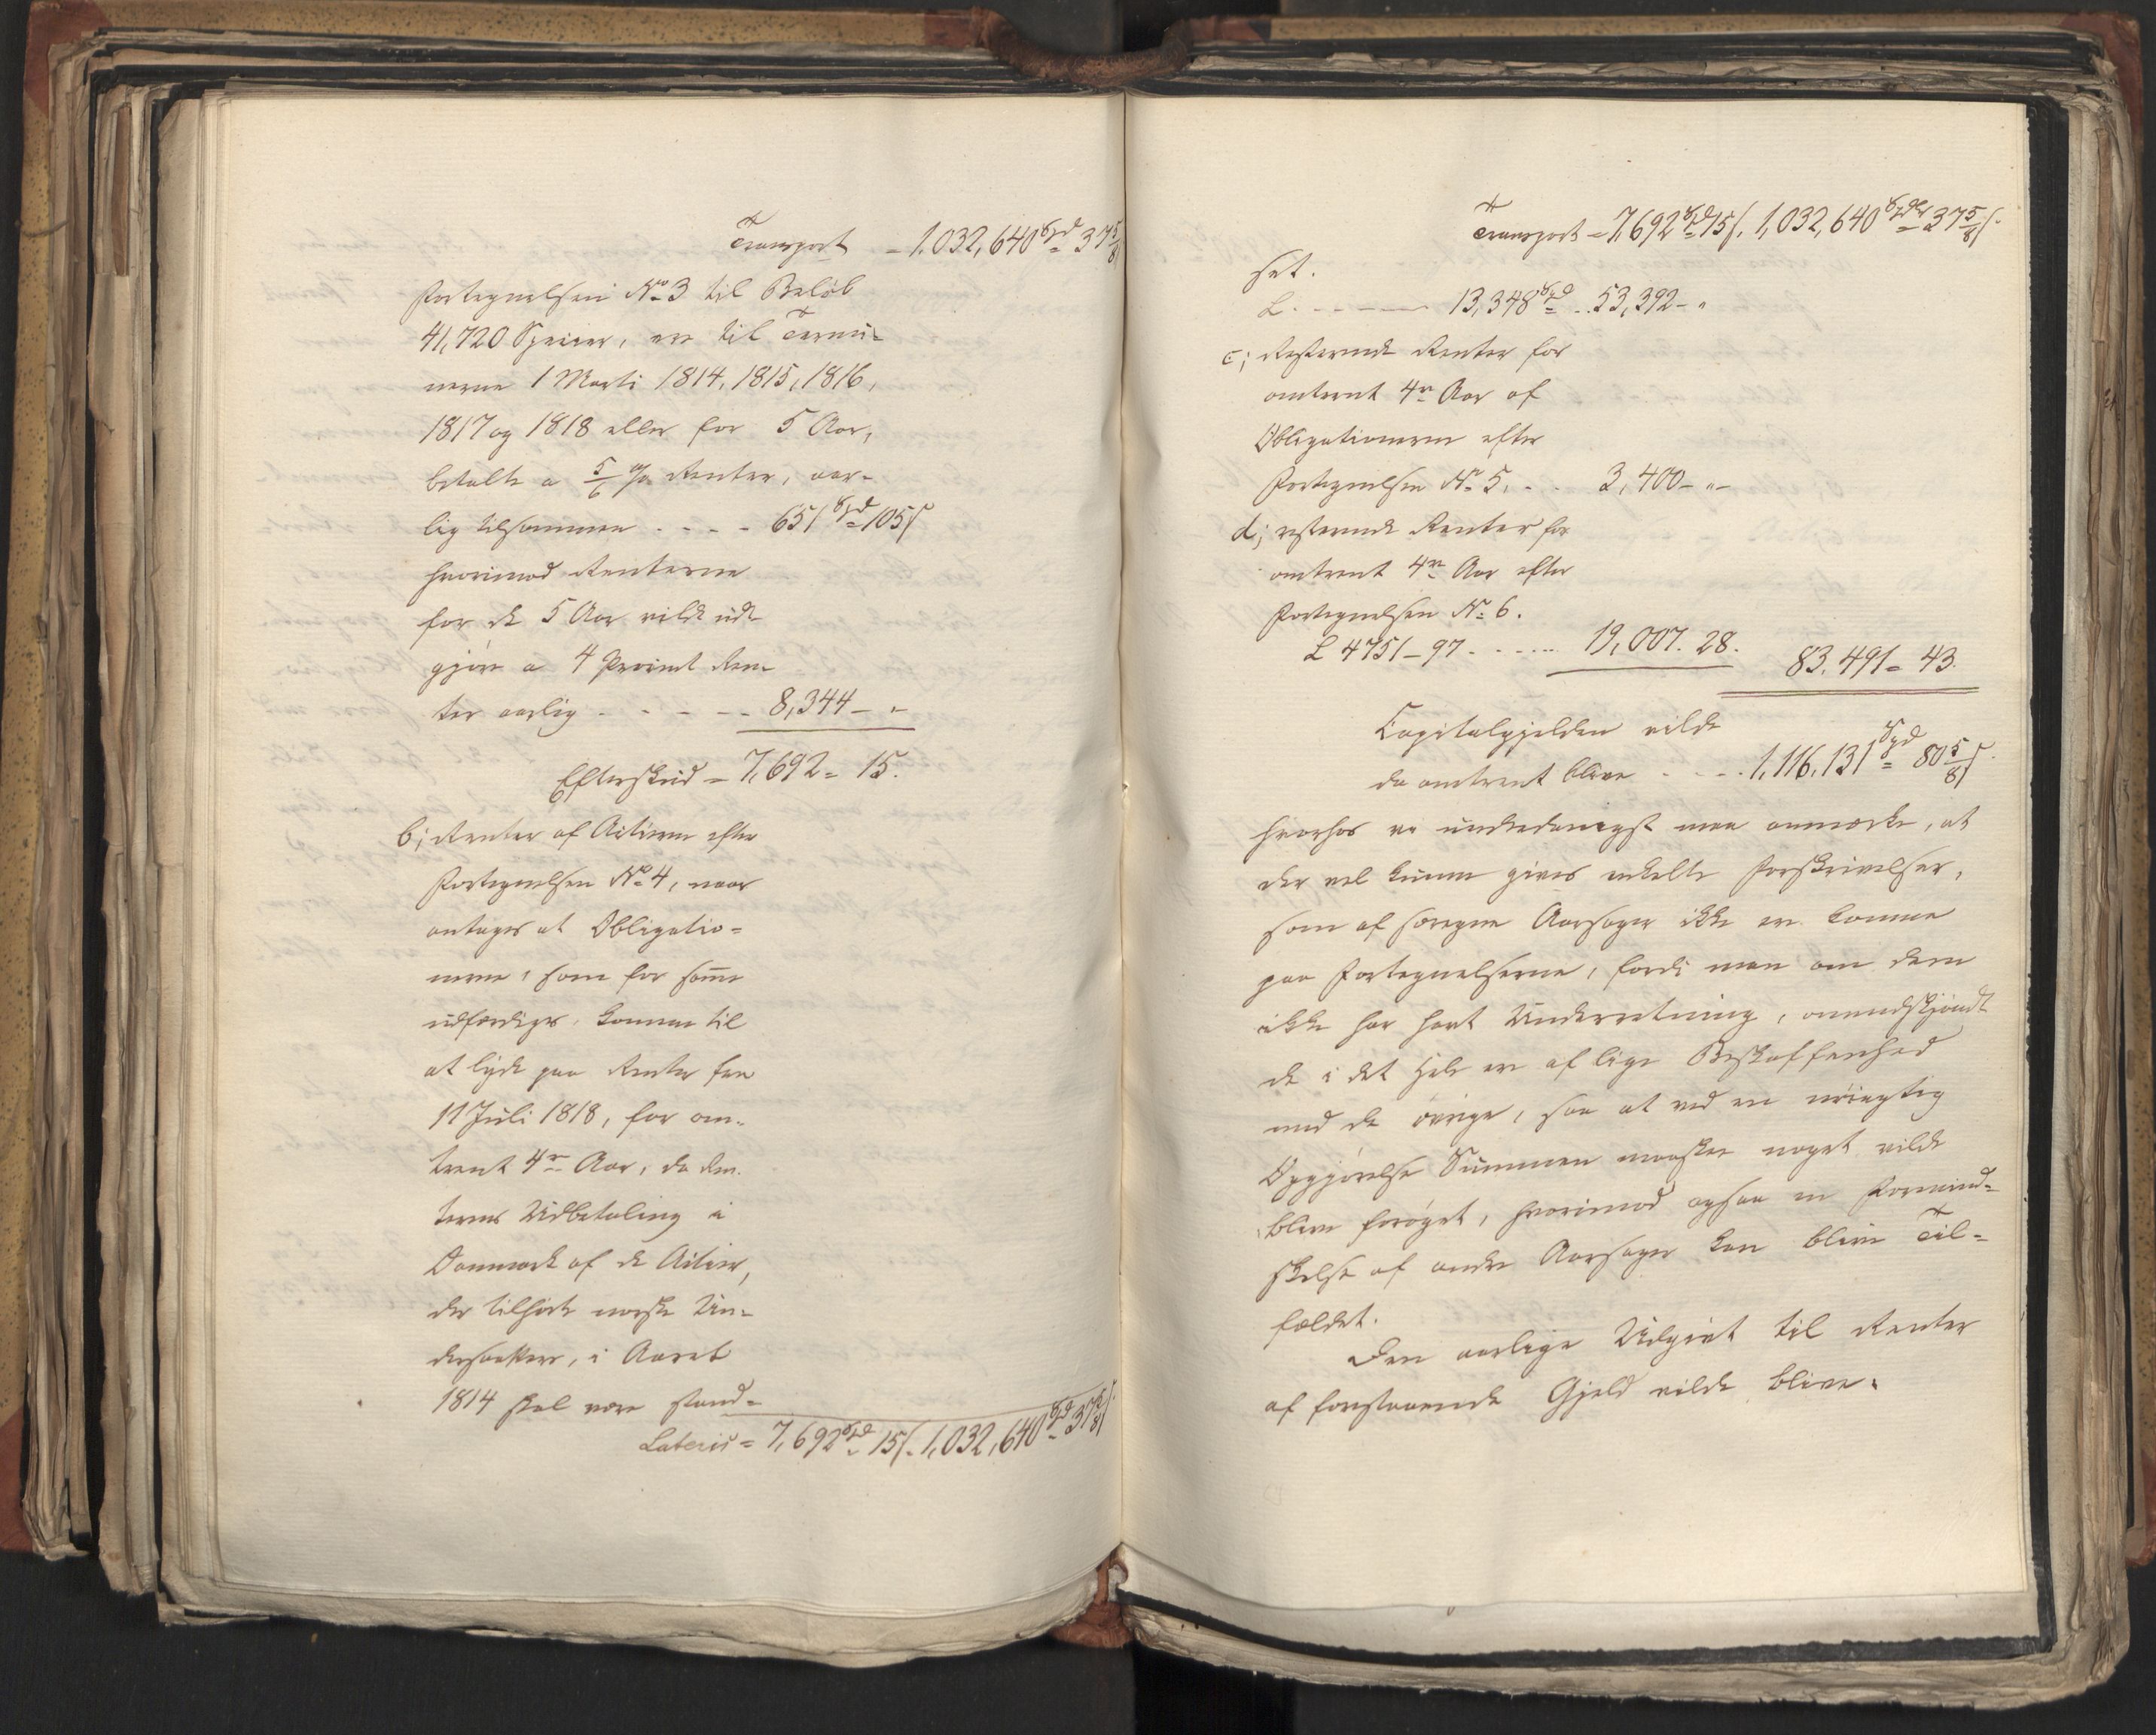 Transport = 1,032,640 Spd 37 5/8
Fortegnelsen No 3 til Beløb
41,720 Species, ere til Termi-
nerne 1 Marti 1814, 1815, 1816,
1817 og 1818 eller for 5 Aar,
betalte a 5/6 % Renter, aar-
lig tilsammen . . . . 651 Spd 105 s
hvorimod Renterne
for de 5 Aar vilde ud-
gjøre a 4 Procent Ren-
ter aarlig . - - - - 8,344 - "-
Efterskud = 7,692 = 15.
b; Renter af Actierne efter
Fortegnelsen No 4, naar
antages at Obligatio-
nerne, som for samme
udfærdiges, komme til
at lyde paa Renter fra
11 Juli 1818, for om-
trent 4re Aar, da Ren-
ternes Udbetaling i
Danmark af de Actier,
der tilhørte norske Un-
dersaatter, i Aaret
1814 skal være stand-
Lateris = 7,692 Spd 15 s. 1,032,640 Spd 37 5/8 s.
Transport = 7,692 Spd 15 s. 1,032,640 Spdlr 37 5/8 s.
set.
L. - - - - 13,348 Spd . . 53,392 - "
c; Resterende Renter for
omtrent 4re Aar af
Obligationerne efter
Fortegnelsen No 5. . . 3,400 - " -
d; resterende Renter for
omtrent 4re Aar efter
Fortegnelsen No 6.
L 4751 - 97 . . . . . 19,007. 28. 83,491 = 43.
Capitalgjelden vilde
da omtrent blive . . . . 1,116,131 Spd 80 5/8 s.
hvorhos vi underdanigst maa anmærke, at
der vel kunne gives enkelte Forskrivelser,
som af særegne Aarsager ikke ere komne
paa Fortegnelserne, fordi man om dem
ikke har havt Underretning, omendskjøndt
de i det Hele ere af lige Beskaffenhed
med de øvrige, saa at ved en nøiagtig
Opgjørelse Summen maaskee noget vilde
blive forøget, hvorimod ogsaa en Formind-
skelse af andre Aarsager kan blive Til-
fældet.
Den aarlige Udgivt til Renter
af forstaaende Gjeld vilde blive.